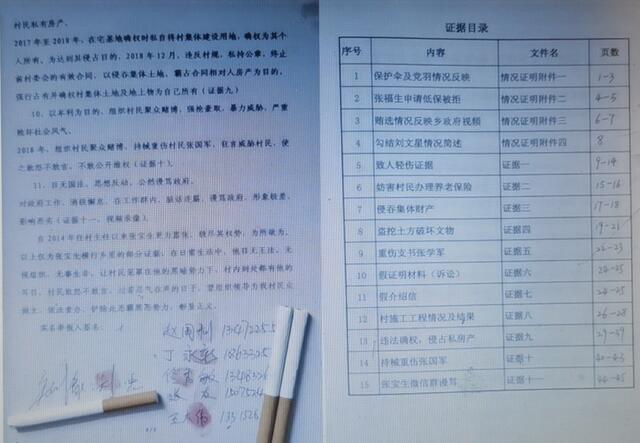 村民私有房产。
2017年至2018年，在宅基地确权时私自将村集体建设用地，确权为其个
人所有。为达到其侵占目的，2018年12月，违反村规，私持公章，终止
前村委会的有效合同，以侵吞集体土地、霸占合同相对人房产为目的，
强行占有并确权村集体土地及地上物为自己所有（证据九）
10、以牟利为目的，组织村民聚众赌博，强抢豪取，暴力威胁，严重
败坏社会风气。
2018年，组织村民聚众赌博、持械重伤村民张国军，狂言威胁村民，使
之敢怒不敢言，不敢公开维权（证据十）。
11、目无国法，思想反动，公然谩骂政府。
对政府工作，消极懈怠，在工作群内，脏话连篇，谩骂政府，形象极差，
影响恶劣（证据十一，视频录像）。
在2014年任村主任以来张宝生更为嚣张，极尽其权势，为所欲为，
以上仅为张宝生横行乡里的部分证据，在日常生活中，他目无王法，无
视组织，无事生非，让村民笼罩在他的黑暗势力下，村内到处都有他的
耳目，村民敢怒不敢言，过着忍气吞声的日子，望组织领导为我村民众
做主，依法查办，铲除此恶霸黑恶势力，彰显正义。
实名举报人签名：
赵国利 1347225
丁 1863325
敏 1348326
张 15075214
王 伟 1331526
证据目录
序号 内容 文件名 页数
1 保护伞及党羽情况反映 情况证明附件一 1-3
2 张福生申请低保被拒 情况证明附件二 4-5
3 贿选情况反映乡政府视频 情况证明附件三 6-7
4 勾结刘文星情况简述 情况证明附件四 8
5 致人轻伤证据 证据一 9-14
6 妨害村民办理养老保险 证据二 15-16
7 侵吞集体财产 证据三 17-18
8 盗挖土方破坏文物 证据四 19-21
9 重伤支书张学军 证据五 22-23
10 假证明材料（诉讼） 证据六 24-25
11 假介绍信 证据七 24-25
12 村施工工程情况及结果 证据八 26-28
13 违法确权，侵占私房产 证据九 29-39
14 持械重伤张国军 证据十 40-43
15 张宝生微信群谩骂 证据十一 44-45